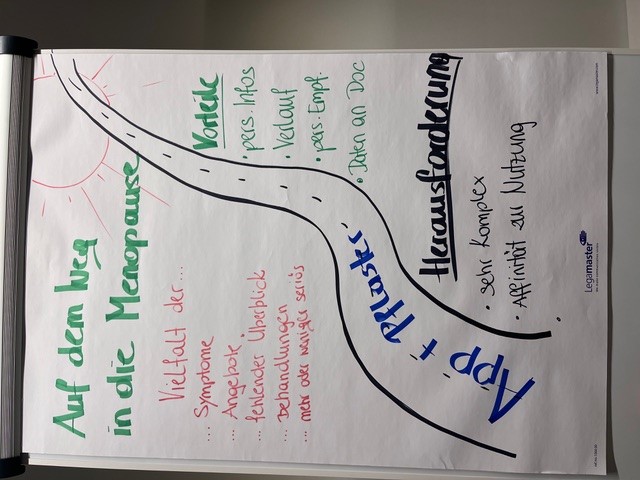 Auf dem Weg
in die Menopause
Vielfalt der...
... Symptome
... Angebote
... fehlender Überblick
... Behandlungen
... mehr oder weniger seriös
Vorteile
• pers. Infos
• Verlauf
• pers. Empf.
• Daten an Doc
App + Pflaster
Herausforderung
• sehr Komplex
• Affinität zur Nutzung
Legamaster